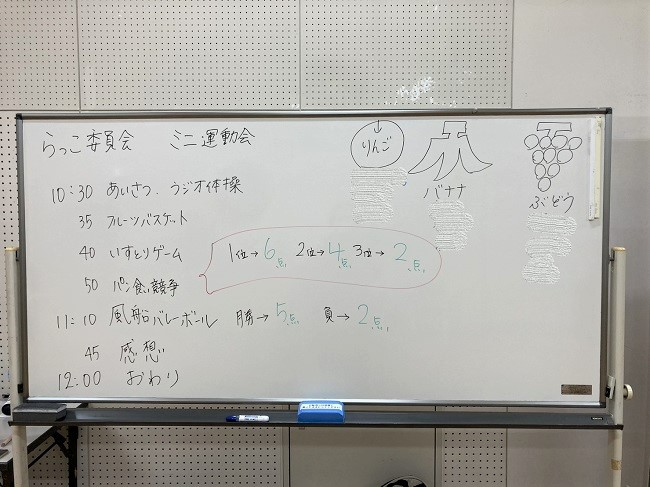 らっこ委員会 ミニ運動会
りんご
バナナ
ぶどう
10:30 あいさつ、ラジオ体操
35 フルーツバスケット
40 いすとりゲーム
1位→6点 2位→4点 3位→2点
50 パン食い競争
11:10 風船バレーボール 勝→5点 負→2点
45 感想
12:00 おわり